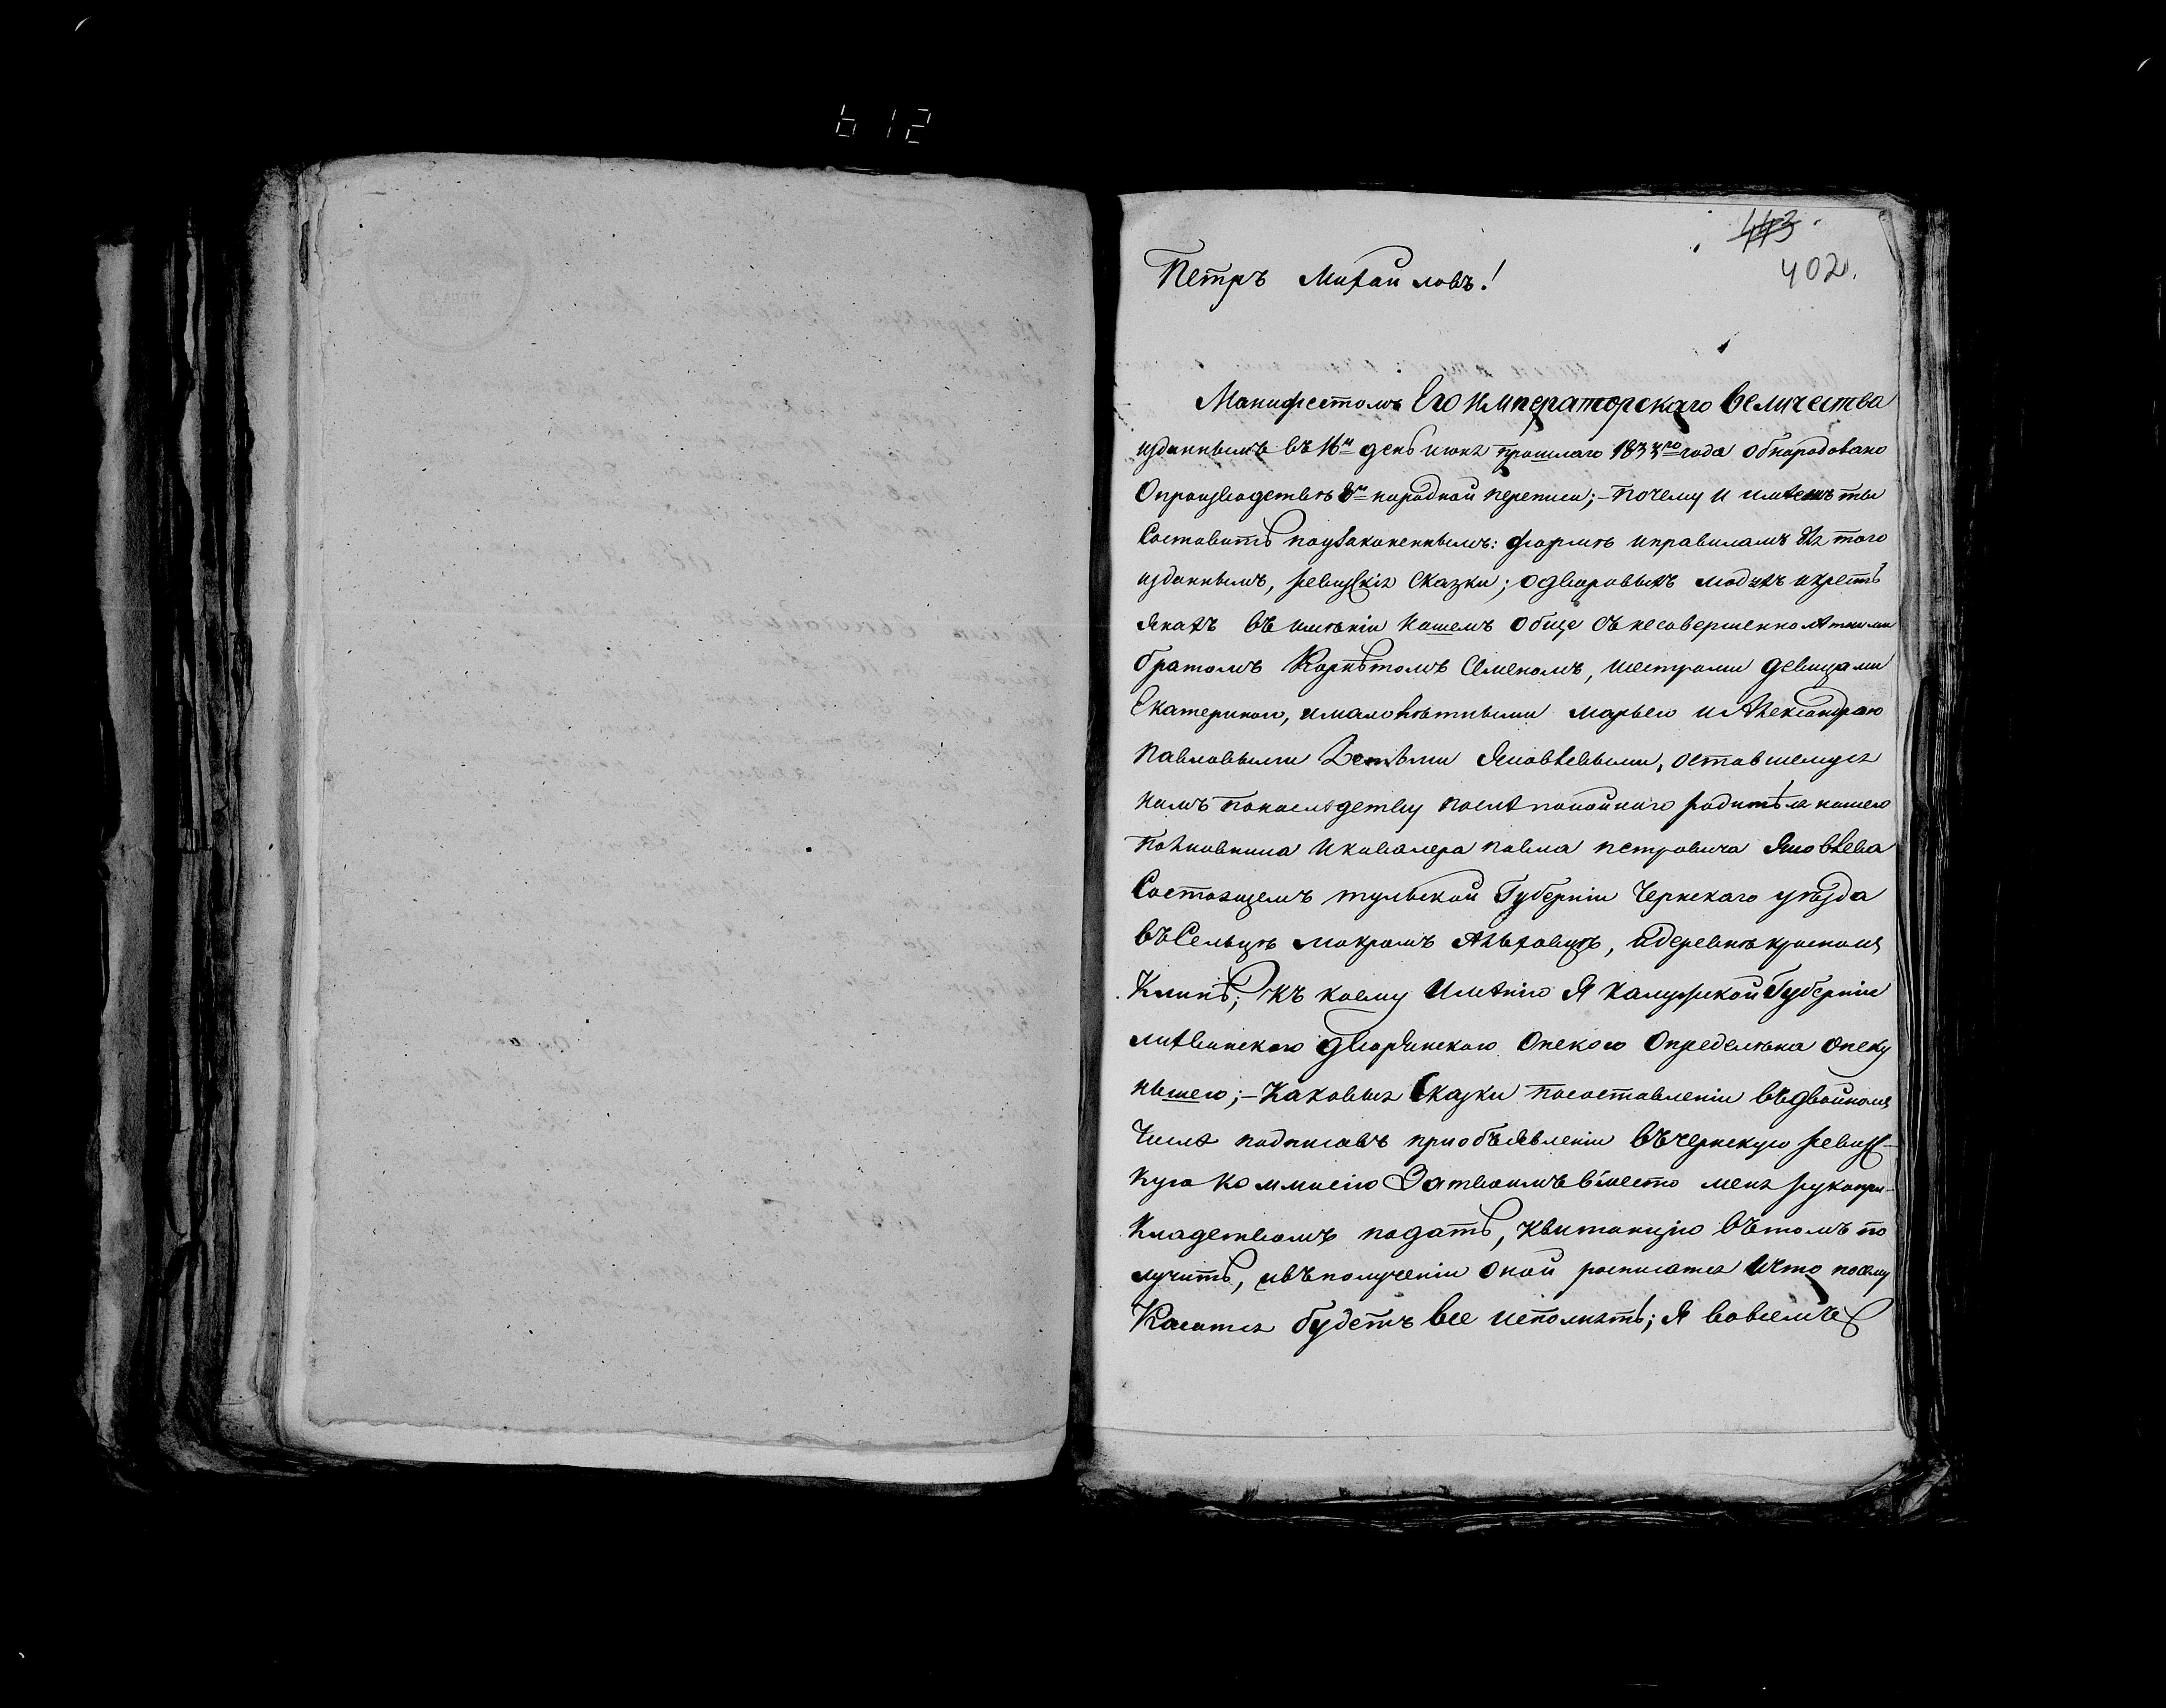 612
443
402.
Петръ Михаиловъ!
Манифестомъ Его Императорскаго Величества
изданнымъ въ 16й день июня прошлаго 1833го года обнародовано
Опроизводствѣ 8й народной переписи; – почему и имѣешъ ты
Составить поузаконеннымъ: формѣ иправиламъ для того
изданнымъ, ревизскія Сказки; одворовыхъ людяхъ икресть
янахъ въ имѣніи нашемъ обще съ несовершеннолѣтнимъ
братомъ Корнѣтомъ Семеномъ, исестрами девицами
Екатериною, ималолѣтными марьею и Александрою
павловыми Детьми Яковлевыми, оставшемуся
намъ понаследству послѣ покойнаго родитѣля нашего
Полковника икавалера павла петровича Яковлева
Состоящемъ тульской Губерніи Чернскаго уѣзда
въ Сельцѣ мокромъ Альховцѣ, идеревнѣ красномъ
Клинѣ; къ коему имѣнію я калужской Губерніи
лихвинскою дворянскою Опекою Определѣна опеку
ншею; – Каковыя Сказки посоставленіи въдвойномъ
Числѣ подписавъ приобъявленіи въчернскую ревизс-
кую коммисію Затвоимъ вместо меня рукопри-
кладствомъ подать, квитанцію вътомъ по
лучить, ивъполученіи оной росписатся ичто посему
Касатся будетъ все исполнять; я вовсемъ